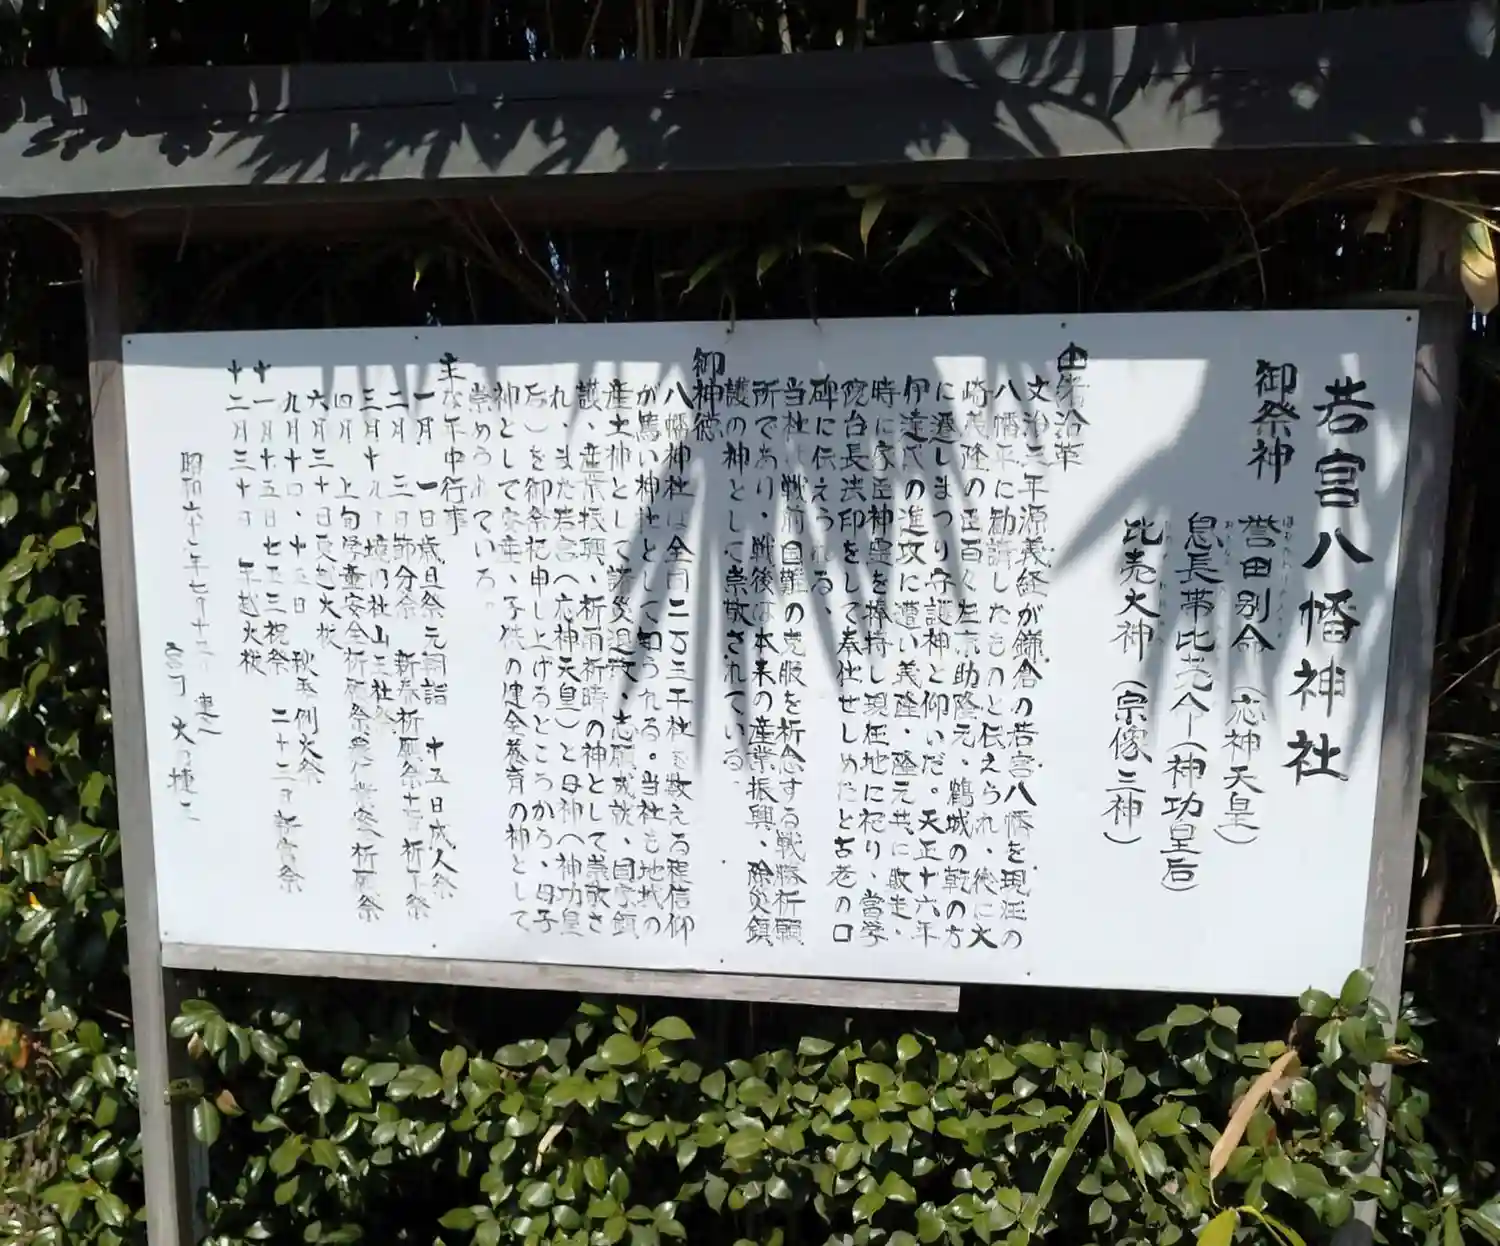 若宮八幡神社
御祭神
誉田別命（応神天皇）
息長帯比売命（神功皇后）
比売大神（宗像三神）
由緒沿革
文治三年源義経が鎌倉の若宮八幡を現在の
八幡平に勧請したものと伝えられ、後に大
崎義隆の臣百々左京助隆元、鶴城の乾の方
に遷しまつり守護神と仰いだ。天正十六年
伊達氏の進攻に遭い義隆・隆元共に敗走、
時に家臣神霊を捧持し現在地に祀り、當学
院台長法印をして奉仕せしめたと古老の口
碑に伝えられる、
当社は戦前国難の克服を祈念する戦勝祈願
所であり、戦後は本来の産業振興、除災鎮
護の神として崇敬されている。
御神徳
八幡神社は全国二万三千社を数える程信仰
が篤い神社として知られる。当社も地域の
産土神として諸災退散・志願成就、国家鎮
護、産業振興、祈雨祈晴の神として崇敬さ
れ、また若宮へ応神天皇）と母神へ神功皇
后）を御祭祀申し上げるところから、母子
神として安産、子供の健全養育の神として
崇められている。
主な年中行事
一月 一日歳旦祭元朝詣 十五日成人祭
二月 三日節分祭 新春祈願祭
三月十九日境内社山王社祭
四月 上旬学童安全祈願祭 祈願祭
六月三十日夏越大祓
九月十四、十五日 秋季例大祭
十一月十五日七五三祝祭 二十三日新嘗祭
十二月三十日 年越大祓
昭和六十 年七月十 日 建之
宮司